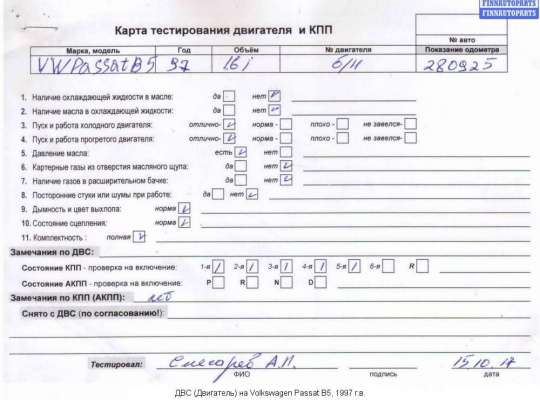 FINNAUTOPARTS
FINNAUTOPARTS
Карта тестирования двигателя и КПП
№ авто
Марка, модель Год Объём № двигателя Показание одометра
VW Passat B5 97 1.6 i б/н 280925
1. Наличие охлаждающей жидкости в масле: да нет
2. Наличие масла в охлаждающей жидкости: да нет
3. Пуск и работа холодного двигателя: отлично- норма - плохо - не завелся-
4. Пуск и работа прогретого двигателя: отлично- норма - плохо - не завелся-
5. Давление масла: есть нет
6. Картерные газы из отверстия масляного щупа: да нет
7. Наличие газов в расширительном бачке: да нет
8. Посторонние стуки или шумы при работе: да нет
9. Дымность и цвет выхлопа: норма
10. Состояние сцепления: норма
11. Комплектность : полная
Замечания по ДВС:
Состояние КПП - проверка на включение: 1-я 2-я 3-я 4-я 5-я 6-я R
Состояние АКПП - проверка на включение: P R N D
Замечания по КПП (АКПП): нет
Снято с ДВС (по согласованию!):
Тестировал: Слесарев А.П. 15.10.17
ФИО подпись дата
ДВС (Двигатель) на Volkswagen Passat B5, 1997 г.в.